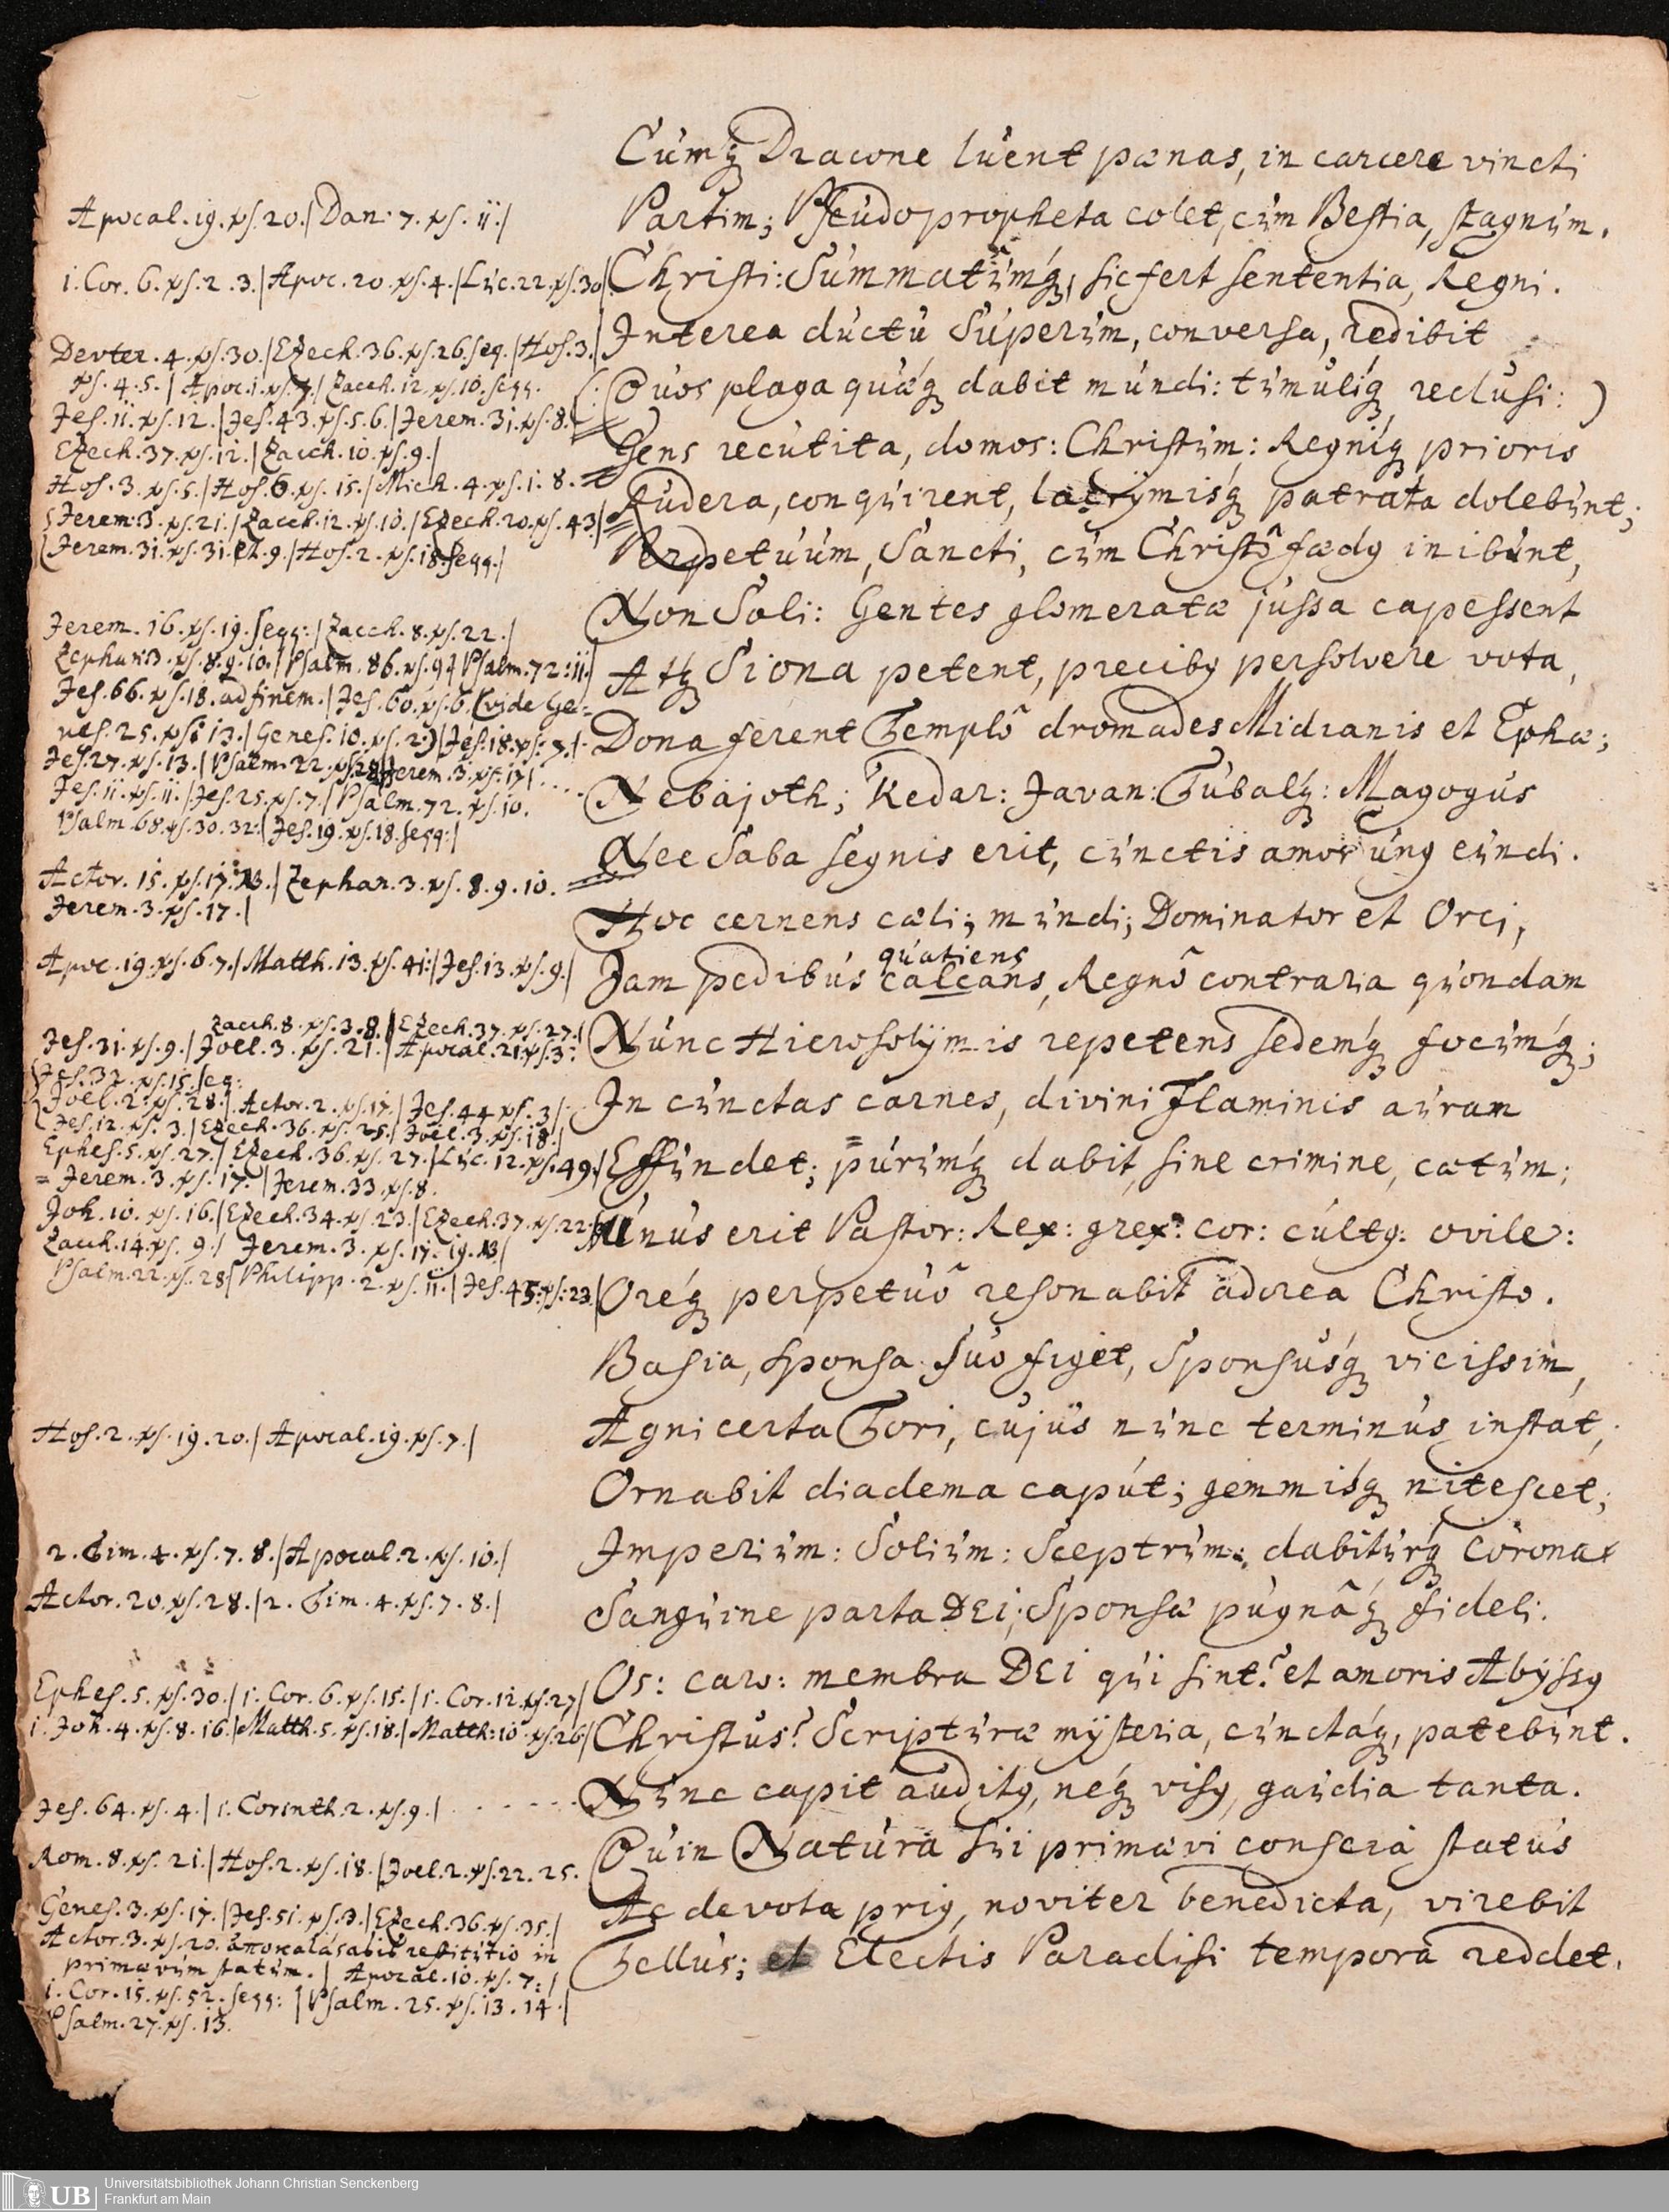 Cúmq́ꝫ Dracone lúent pœnas, in carcere vincti
Partim; Pseúdopropheta colet, cúm Bestia, stagnúm.
Christi: Súmmatúmq́ꝫ, sic fert sententia, Regni.
Interea dúctú Súperúm, conversa, redibit
(: Qúos plaga qúæq́ꝫ dabit múndi: túmúliq́ꝫ reclúsi: )
Gens recútita, domos: Christúm: Regniq́ꝫ prioris
Fúdera, conqúirent, lacrÿmisq́ꝫ patrata dolebúnt;
Perpetúúm, Sancti, cúm Christô fœdꝰ inibúnt,
Non Soli: Gentes glomeratæ jússa capessent
Atqꝫ Siona petent, precibꝰ persolvere vota,
Dona ferent Templô dromades Midianis et Ephæ;
Nebajoth; Kedar: Javan: Túbalqꝫ: Magogús
Nec Saba segnis erit, cúnctis amor únꝰ eúndi.
Hoc cernens cæli; múndi; Dominator et Orci,
qúatiens
Jam pedibús calcans, Regnô contraria qúondam
Núnc Hierosolÿmis repetens sedemq́ꝫ focúmq́ꝫ;
In cúnctas carnes, divini Flaminis aúram
Effúndet; púrúmq́ꝫ dabit, sine crimine, cætúm;
Únús erit Pastor: Rex: grex: cor: cúltꝰ: ovile:
Oreq́ꝫ perpetúô resonabit adorea Christo.
Basia, sponsa súo figet, Sponsúsq́ꝫ vicissim,
Agni certa Tori, cújús núnc terminús instat,
Ornabit diadema capút; gemmisq́ꝫ nitescet;
Imperiúm: Soliúm: Sceptrúm: dabitúrq́ꝫ Corona
Sangúine parta DEI; Sponsæ púgnâq́ꝫ fideli.
Os: caro: membra DEI qúi sint? et amoris Abÿssꝰ
Christús? Scriptúræ mÿsteria, cúnctáq́ꝫ, patebúnt.
Núnc capit aúditꝰ, neq́ꝫ visꝰ, gaúdia tanta.
Qúin Natúra súi primævi conscia statús
Ac devota priꝰ, noviter benedicta, virebit
Tellús; et Electis Paradisi tempora reddet.
Apocal. 19. vs. 20. | Dan: 7. vs. 11. |
1. Cor. 6. vs. 2. 3. | Apoc. 20. vs. 4. | Lúc. 22. vs. 30 |
Devter. 4. vs. 30. | Ezech. 36. vs. 26. seq. | Hos. 3. |
vs. 4. 5. | Apoc. 1. vs. 7. | Zacch. 12. vs. 10. seqq.
Jes. 11. vs. 12. | Jes. 43. vs. 5. 6. | Jerem. 31. vs. 8.
Ezech. 37. vs. 12. | Zacch. 10. vs. 9. |
Hos. 3. vs. 5. | Hos. 6. vs. 15. | Mich. 4. vs. 1. 8.
Jerem. 3. vs. 21. | Zacch. 12. vs. 10. | Ezech. 20. vs. 43 |
Jerem. 31. vs. 31. et. 9. | Hos. 2. vs. 18. seqq. |
Jerem. 16. vs. 19. seqq: | Zacch. 8. vs. 22. |
Zephan. 3. vs. 8. 9. 10. | Psalm. 86. vs. 9. | Psalm. 72: 11. |
Jes. 66. vs. 18. ad finem. | Jes. 60. vs. 6. (vide Ge-
nes. 25. vs. 13. | Genes. 10. vs. 2:) | Jes. 18. vs. 7. |
Jes. 27. vs. 13. | Psalm. 22. vs. 28 | Jerem. 3. vs. 17 |
Jes. 11. vs. 11. | Jes. 25. vs. 7. | Psalm. 72. vs. 10.
Psalm. 68. vs. 30. 32: | Jes. 19. vs. 18. seqq: |
Actor. 15. vs. 17. 18. | Zephan. 3. vs. 8. 9. 10.
Jerem. 3. vs. 17. |
Apoc. 19. vs. 6. 7. | Matth. 13. vs. 41: | Jes. 13. vs. 9. |
Zacch. 8. vs. 3. 8. | Ezech. 37. vs. 27. |
Jes. 31. vs. 9. | Joel. 3. vs. 21. | Apocal. 21. vs. 3:
Jes. 32. vs. 15. seq:
Joel. 2. vs. 28. | Actor. 2. vs. 17. | Jes. 44 vs. 3 |
Jes. 12. vs. 3. | Ezech. 36. vs. 25. | Joel. 3. vs. 18. |
Ephes. 5. vs. 27. | Ezech. 36. vs. 27. | Lúc. 12. vs. 49. |
= Jerem. 3. vs. 17. | Jerem. 33. vs. 8.
Joh. 10. vs. 16. | Ezech. 34. vs. 23. | Ezech. 37. vs. 22 |
Zacch. 14. vs. 9. | Jerem. 3. vs. 17. 19.
Psalm. 22. vs. 28 | Philipp. 2. vs. 11. | Jes. 45: vs: 23. |
Hos. 2. vs. 19. 20. | Apocal. 19. vs. 7. |
2. Tim. 4. vs. 7. 8. | Apocal. 2. vs. 10. |
Actor. 20. vs. 28. | 2. Tim. 4. vs. 7. 8. |
Ephes. 5. vs. 30. | 1. Cor. 6. vs. 15. | 1. Cor. 12. vs. 27 |
1. Joh. 4. vs. 8. 16. | Matth. 5. vs. 18. | Matth: 10. vs. 26 |
Jes. 64. vs. 4. | 1. Corinth. 2. vs. 9. |
Rom. 8. vs. 21. | Hos. 2. vs. 18. | Joel. 2. vs. 22. 25.
Genes. 3. vs. 17. | Jes. 51. vs. 3. | Ezech. 36. vs. 35. |
Actor. 3. vs. 20. restitútio in
primævúm statúm. | Apocal. 10. vs. 7: |
1. Cor. 15. vs. 52. seqq: | Psalm. 25. vs. 13. 14. |
Psalm. 27. vs. 13.
UB Universitätsbibliothek Johann Christian Senckenberg
Frankfurt am Main